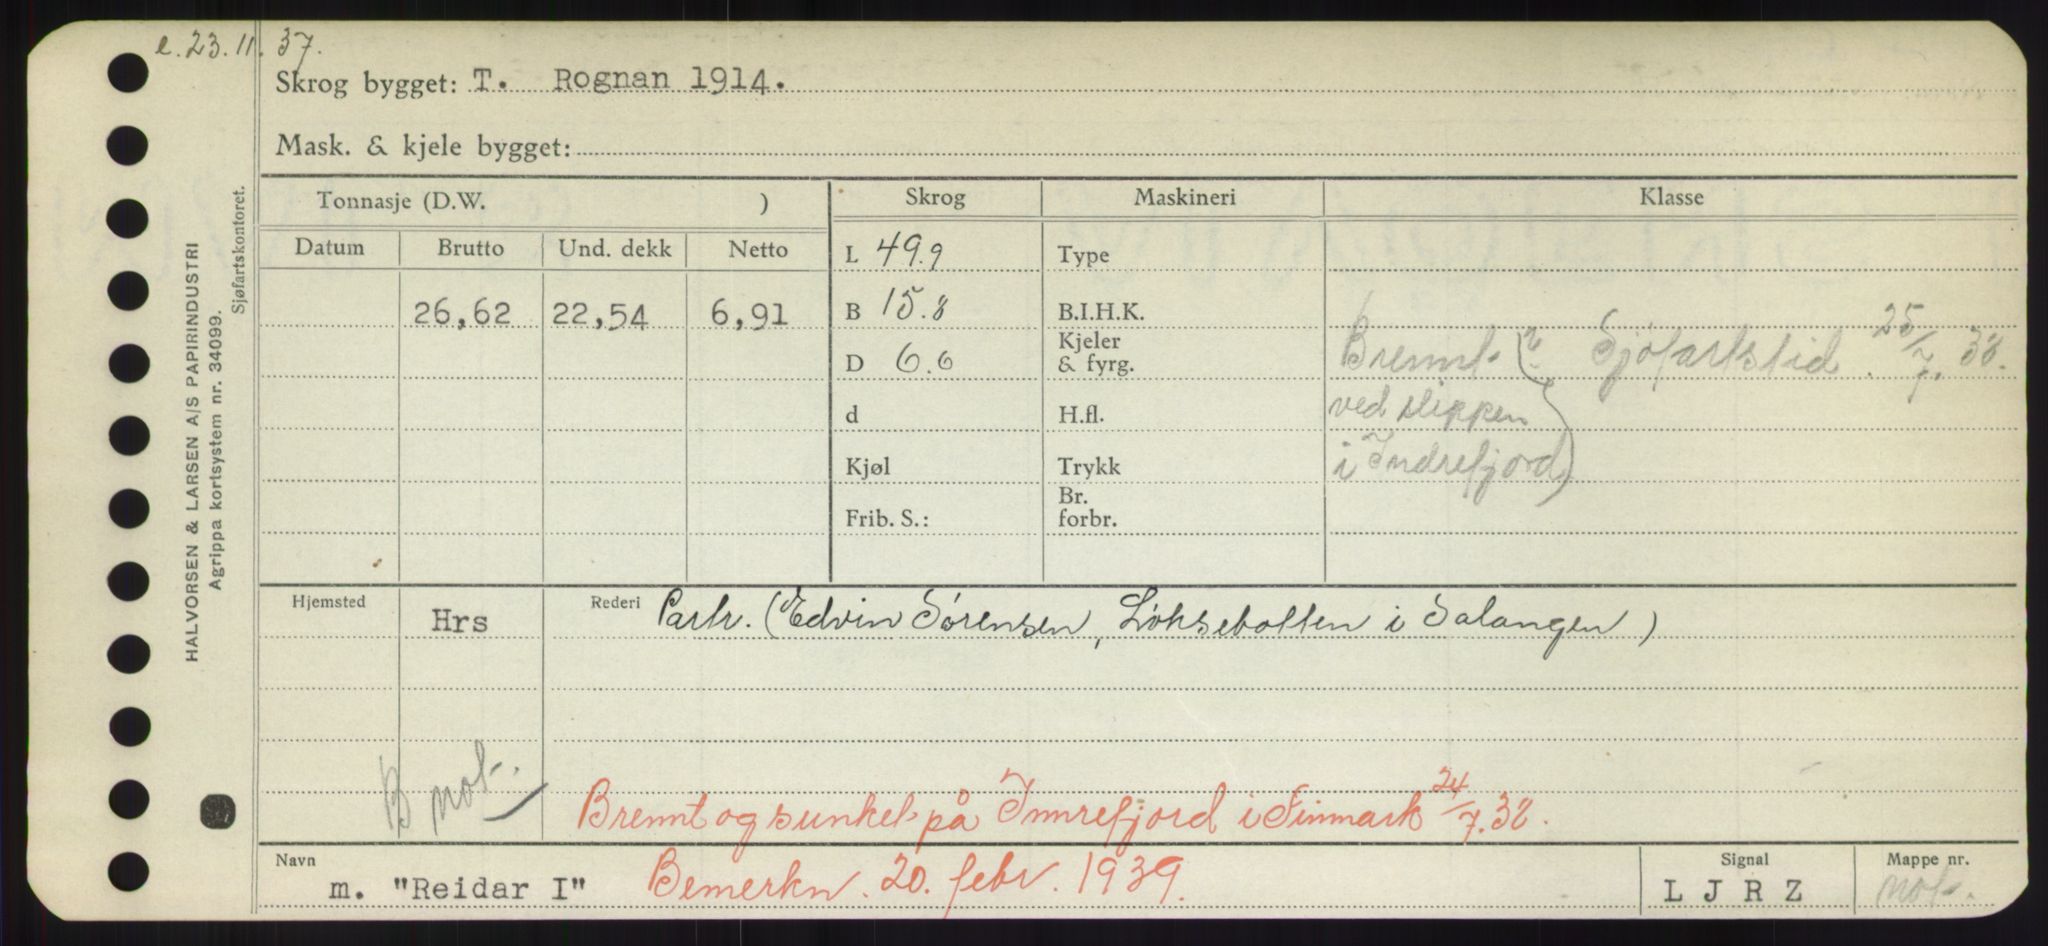 e. 23.11.37.
Skrog bygget: T. Rognan 1914.
Mask. & kjele bygget:
HALVORSEN & LARSEN A/S PAPIRINDUSTRI
Agrippa kortsystem nr. 34099.
Sjøfartskontoret.
Tonnasje (D.W. )
Skrog
Maskineri
Klasse
Datum Brutto Und. dekk Netto
26,62 22,54 6,91
L 49.9
B 15.8
D 6.6
d
Kjøl
Frib. S.:
Type
B.I.H.K.
Kjeler
& fyrg.
H.fl.
Trykk
Br.
forbr.
Brennt Sjöfartstid. 25/7.38.
ved slippen
i Indrefjord
Hjemsted Hrs Rederi Partr. (Edvin Sørensen, Løksebotten i Salangen)
B not.
Brennt og sunket på Innrefjord i Finmark 24/7.38.
Navn m. "Reidar I" Bemerkn. 20. febr. 1939.
Signal L J R Z
Mappe nr. not.